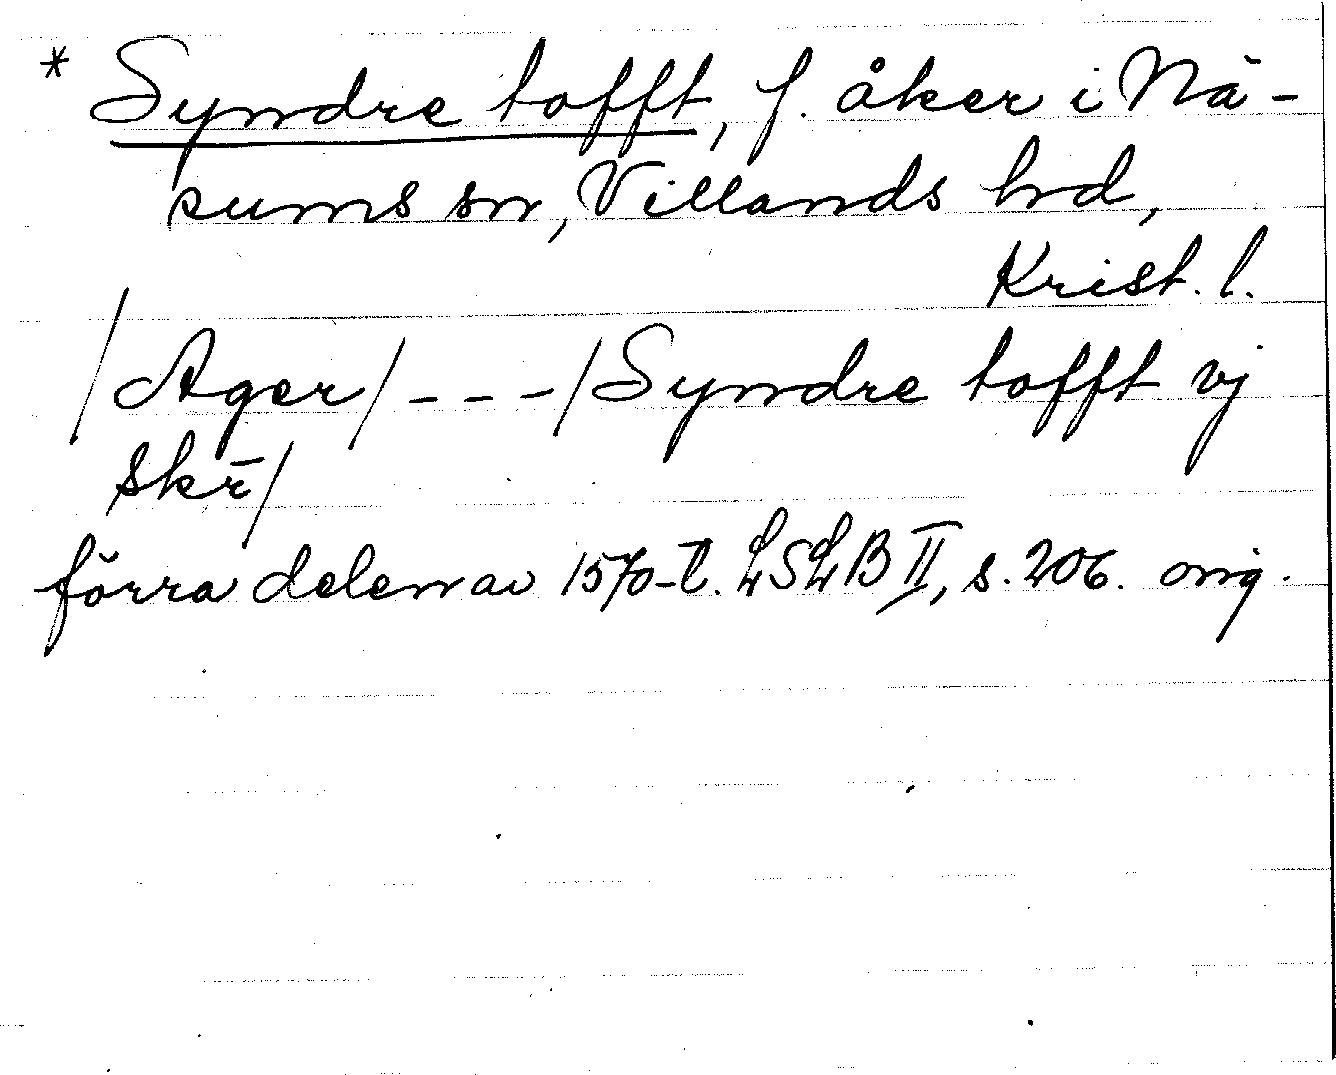 * Syndre tofft, f. åker i Nä-
sums sn, Villands hrd,
Krist. l.
/Ager/ - - - /Syndre tofft vj
skr̄/
förra delen av 1570-t. LSLB II, s. 206. orig.